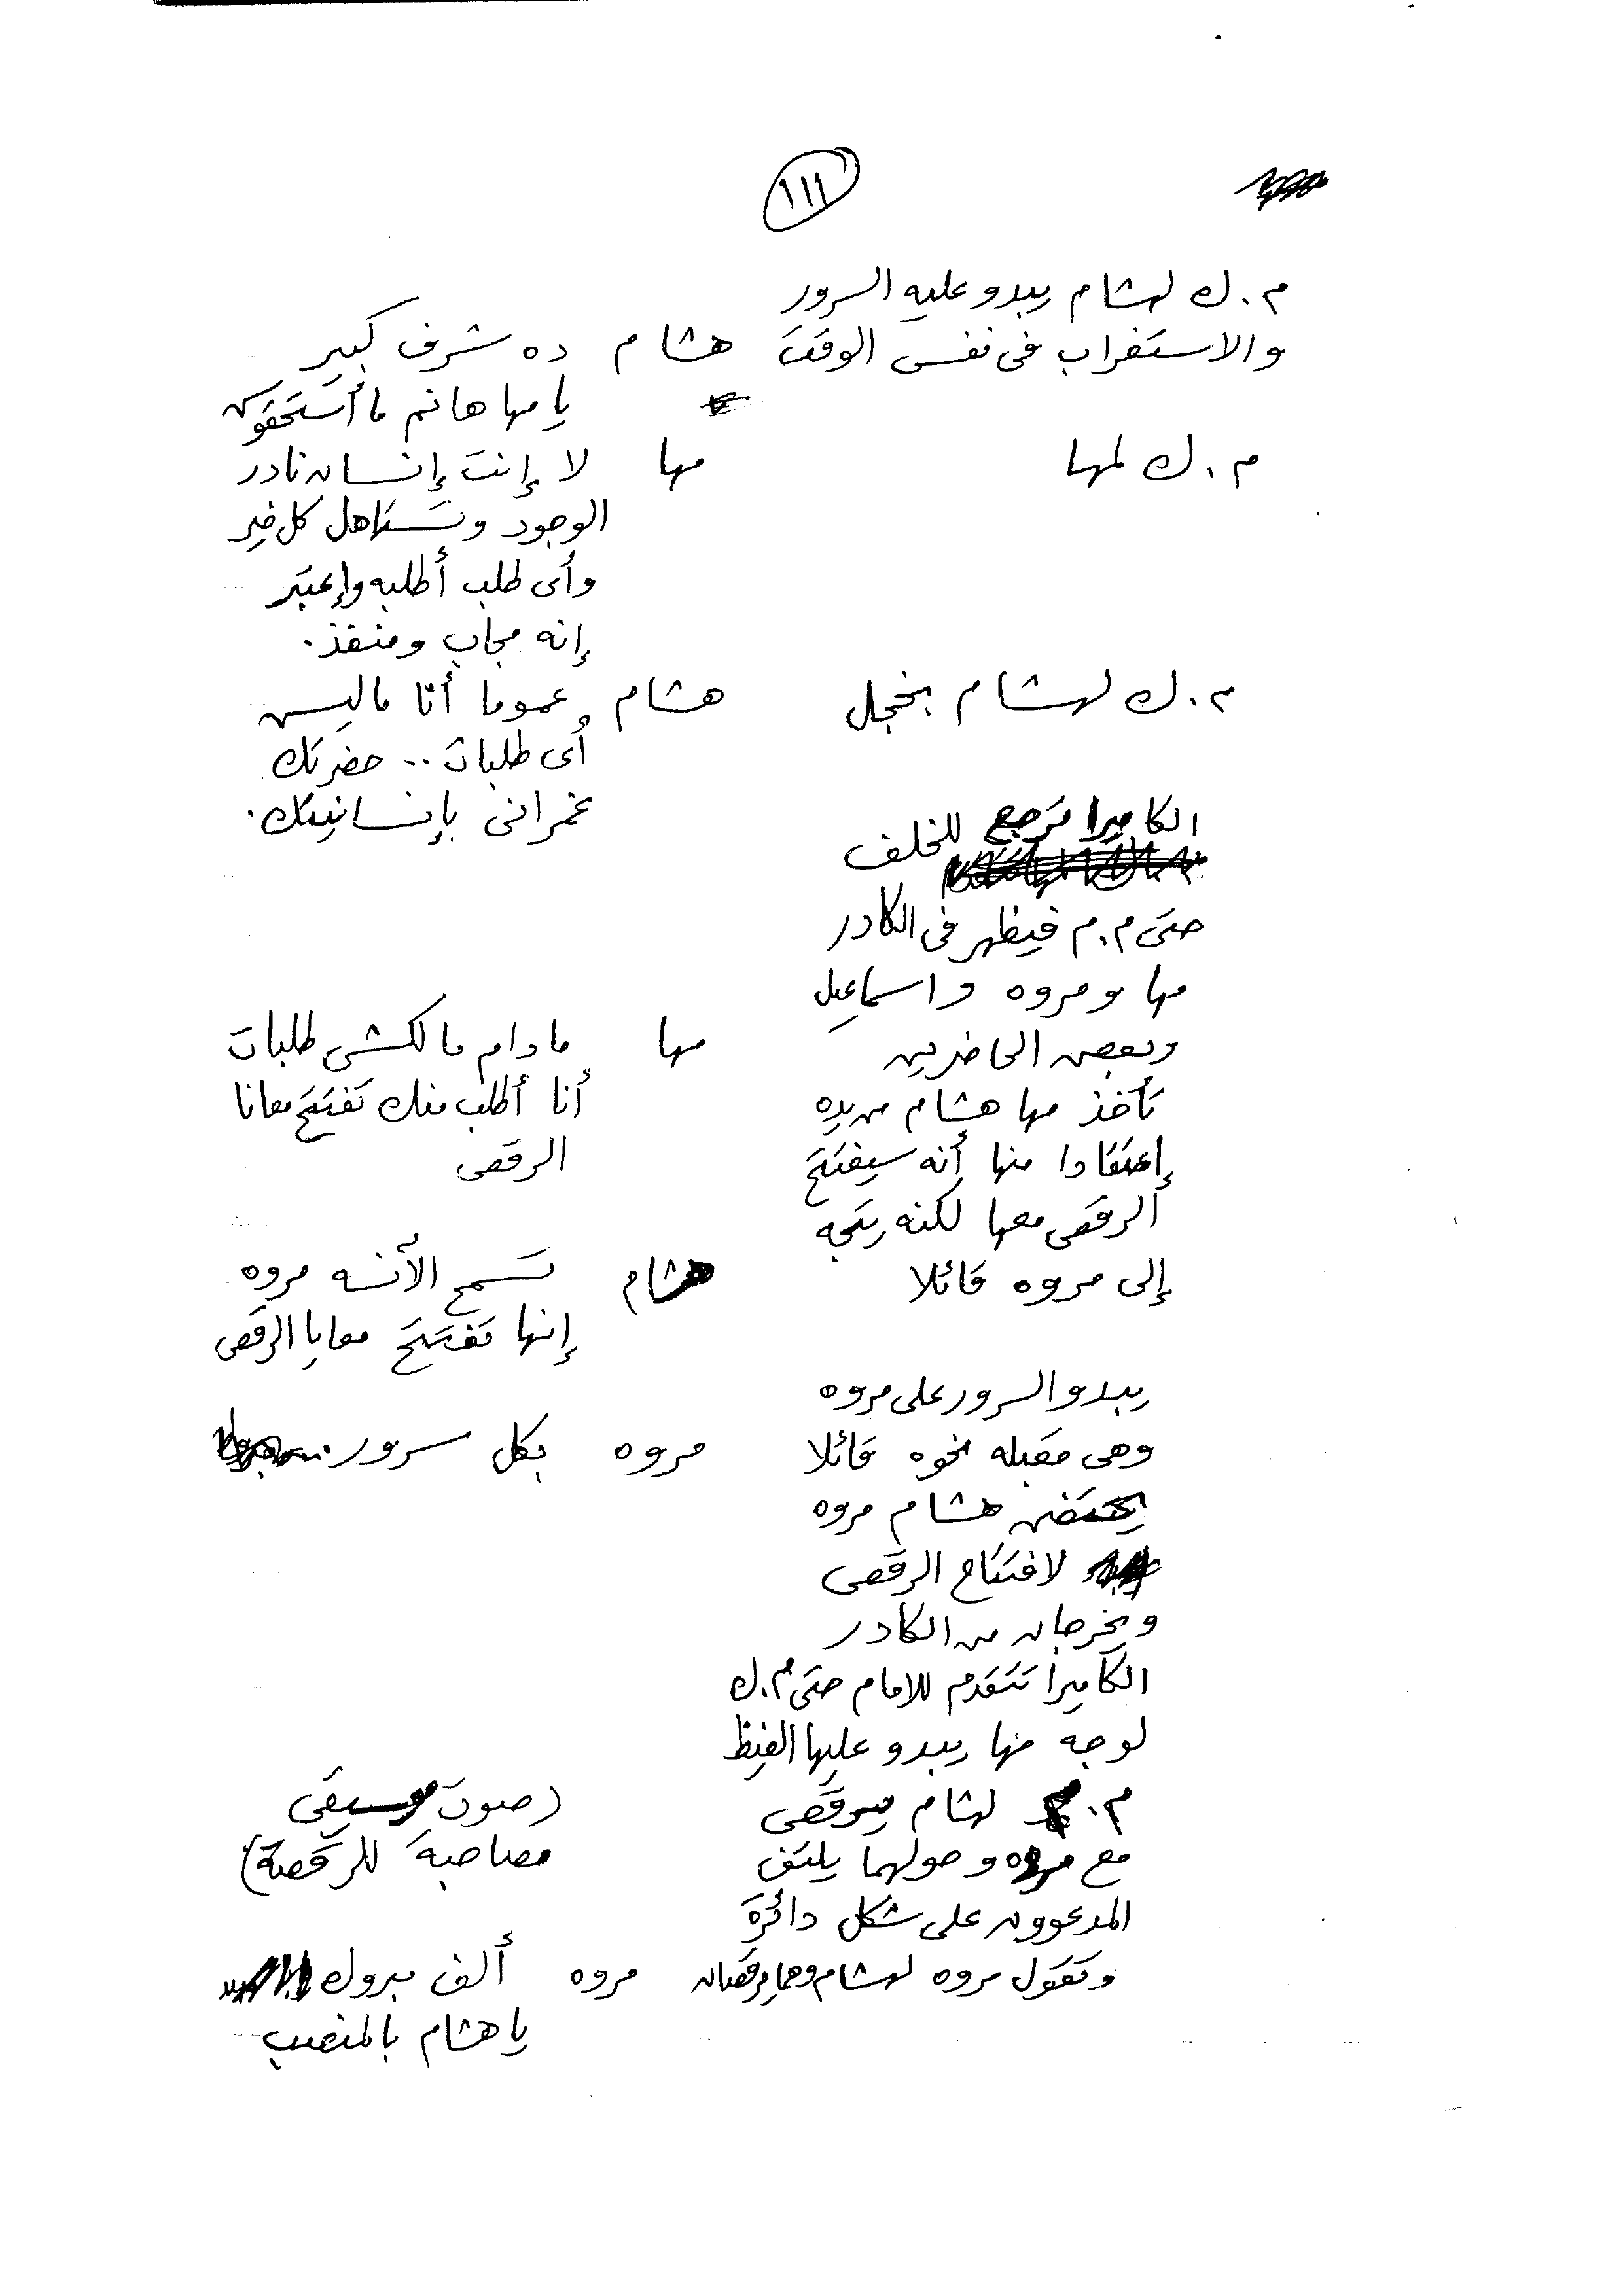 ١١١
م.ك لهشام يبدو عليه السرور
والاستغراب فى نفس الوقت هشام ده شرف كبير
يا مها هانم ما أستحقوش
م.ك لمها مها لا إنت إنسان نادر
الوجود وتستاهل كل خير
وأى طلب أطلبه وإعتبر
إنه مجاب ومنفذ.
م.ك لهشام بخجل هشام عموما أنا ماليش
أى طلبات .. حضرتك
غمرانى بإنسانيتك.
الكاميرا ترجع للخلف
حتى م.م فيظهر فى الكادر
مها ومروه واسماعيل
وبعض الحاضرين مها مادام مالكش طلبات
تأخذ مها هشام من يده أنا أطلب منك تفتتح معانا
إعتقادا منها أنه سيفتتح الرقص
الرقص معها لكنه يتجه
إلى مروه قائلا هشام تسمح الأنسه مروه
إنها تفتتح معايا الرقص
يبدو السرور على مروه
وهى مقبله نحوه قائلا مروه بكل سرور
يحتضن هشام مروه
لافتتاح الرقص
ويخرجان من الكادر
الكاميرا تتقدم للامام حتى م.ك
لوجه مها يبدو عليها الغيظ
م. لهشام يرقص (صوت موسيقى
مع مروه وحولهما يلتف مصاحبة للرقصة)
المدعوون على شكل دائرة
وتقول مروه لهشام وهما يرقصان مروه ألف مبروك
يا هشام بالمنصب